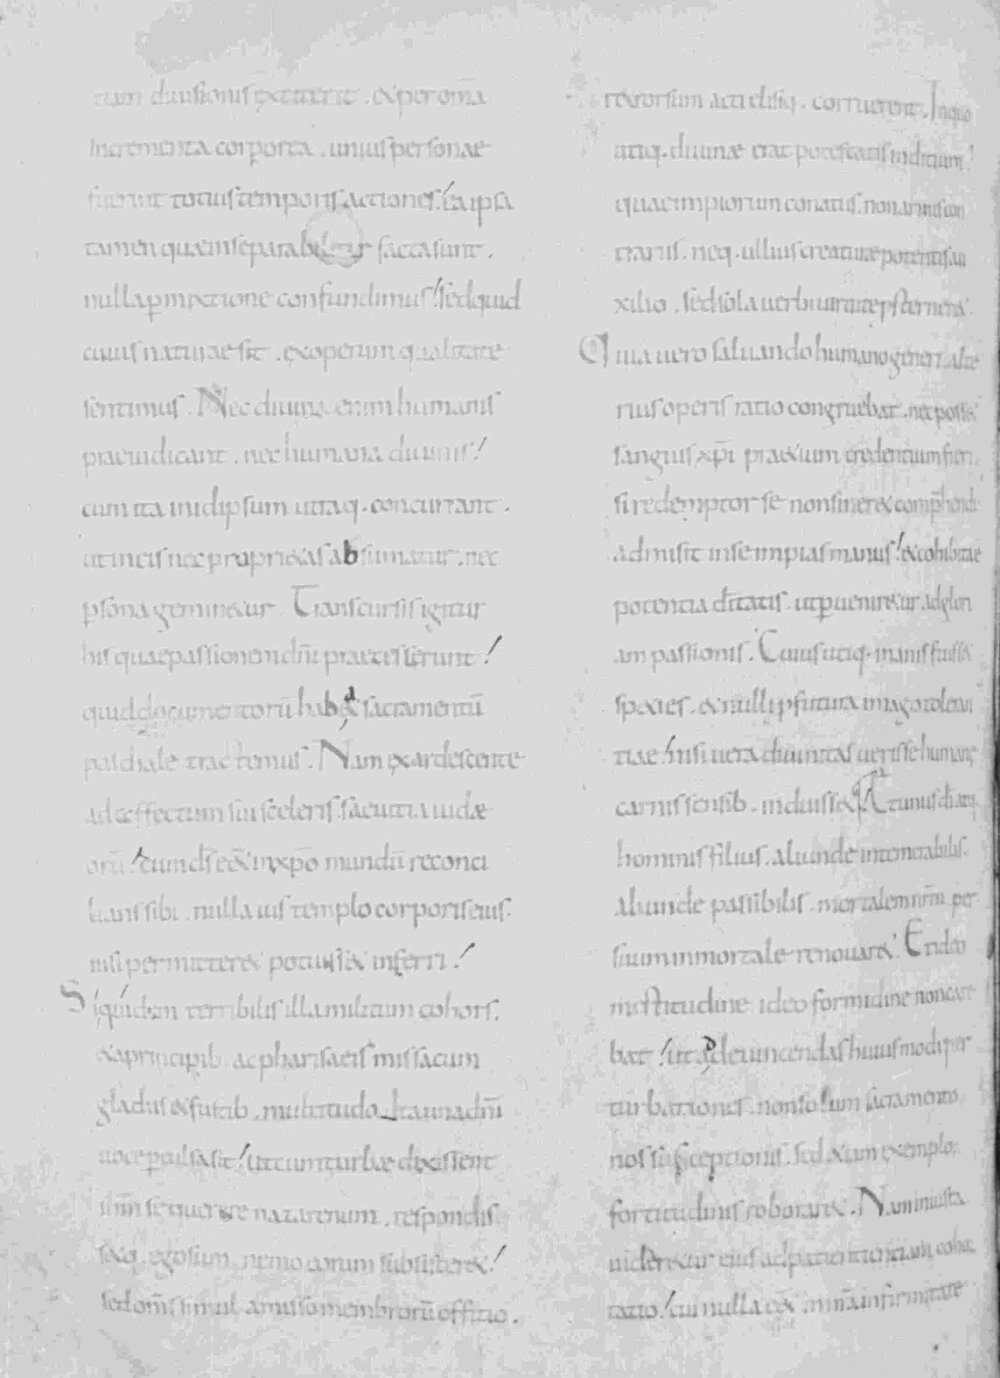 tiam diuisionis extiterit. & per om̄a
incrementa corporea. unius personae
fuerint totius temporis actiones! Ea ipsa
tamen quae inseparabiliter facta sunt.
nulla p̄mixtione confundimus! sed quid
cuius naturae sit. ex operum qualitate
sentimus. Nec diuina enim humanis
praeiudicant. nec humana diuinis!
cum ita in idipsum utraq. concurrant.
ut in eis nec propri&as absumatur. nec
p̄sona gemin&ur. Transcursis igitur
his quae passionem dn̄i praecesserunt!
quid documentorū hab& sacramentū
paschale tractemus. Nam exardescente
ad effectum sui sceleris saeuitia iudae
orū! cum d̄s ēē& in xp̄o mundū reconci
lians sibi. nulla uis templo corporis eius.
nisi permitter& potuiss& inferri!
Siquidem terribilis illa militum cohors.
& a principib. ac pharisaeis missa cum
gladiis & fustib. multitudo. Ita una dn̄i
uoce perculsa sit! ut cum turbae dixissent
ihm̄ se querere nazarenum. respondis
s&q. ego sum. nemo eorum subsister&!
sed om̄s simul amisso membrorū officio.
retrorsum acti elisiq. corruerent. In quo
utiq. diuinae erat potestatis indicium!
quae impiorum conatus. non armis con
trariis. neq. ullius creaturae potentis au
xilio. sed sola uerbi uirtute p̄sterner&.
Quia uero saluando humano generi. alte
rius operis ratio congruebat. nec poss&
sanguis xp̄i praetium credentium fieri.
si redemptor se non siner& comp̄hendi
admisit in se impias manus! & cohibitae
potentia dēitatis. ut p̄uenir&ur ad glori
am passionis. Cuius utiq. inanis fuiss&
species. & nulli p̄futura imago toleran
tiae! nisi uera diuinitas uerisse humanae
carnis sensib. induiss& Ut unus d̄i atq.
hominis filius. aliunde intemerabilis.
aliunde passibilis. mortalem nr̄m. per
suum inmortale renouar&. Et ideo
mestitudine ideo formidine non care
bat! ut ad euincendas huiusmodi per
turbationes. non solum sacramento
nos susceptionis. sed &iam exemplo
fortitudinis roborar&. Nam iniusta
uider&ur eius ad patientiam cohor
tatio! cui nulla ēē& in nr̄a infirmitate